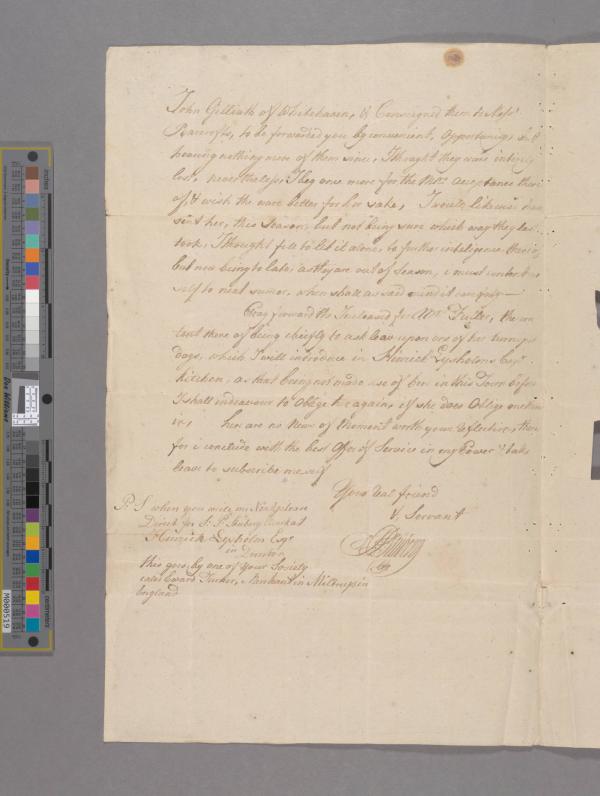 John Gilliath of Whitehaven, & Consigned them to Mess.rs
Bancrofts, to be forwarded you by convenient, opportunity, but
hearing nothing more of them since, I thought they were intirely
lost, never the less, They are more for the Mrs. acceptance there
of, & wish the ware better for her sake, I would likewise have
sent her, this season, but not being sure which way they last
took, I thought fitt to let it alone, to further inteligence there of
but now being to late, as they are out of season, i must
self to next sumer, when shall as said mind it carefully —
Pray forward the Inclosed for Mrs. Fuller, the con
tent there of being chiefly to ask leav upon one of her turnspit
dogs, which I will introduce in Hinrich Lysholms Esqr.
kitchen, as that being not made use of ben in this Town before
I shall indeavour to Oblige her again, if she does Oblige one
in, her are no News of Moment worth your reflection, there
for i conclude with the best Offer of Service in my Power & take
leave to subscribe me self
Your real friend
& Servant
P. S. when you write, mr
Direct for
Hinrich Lysholm Esqr
in
this goes by one of your Society
calld Edward Tucker, Marchant in
England
inches
centimeters
Don Williams
M000519